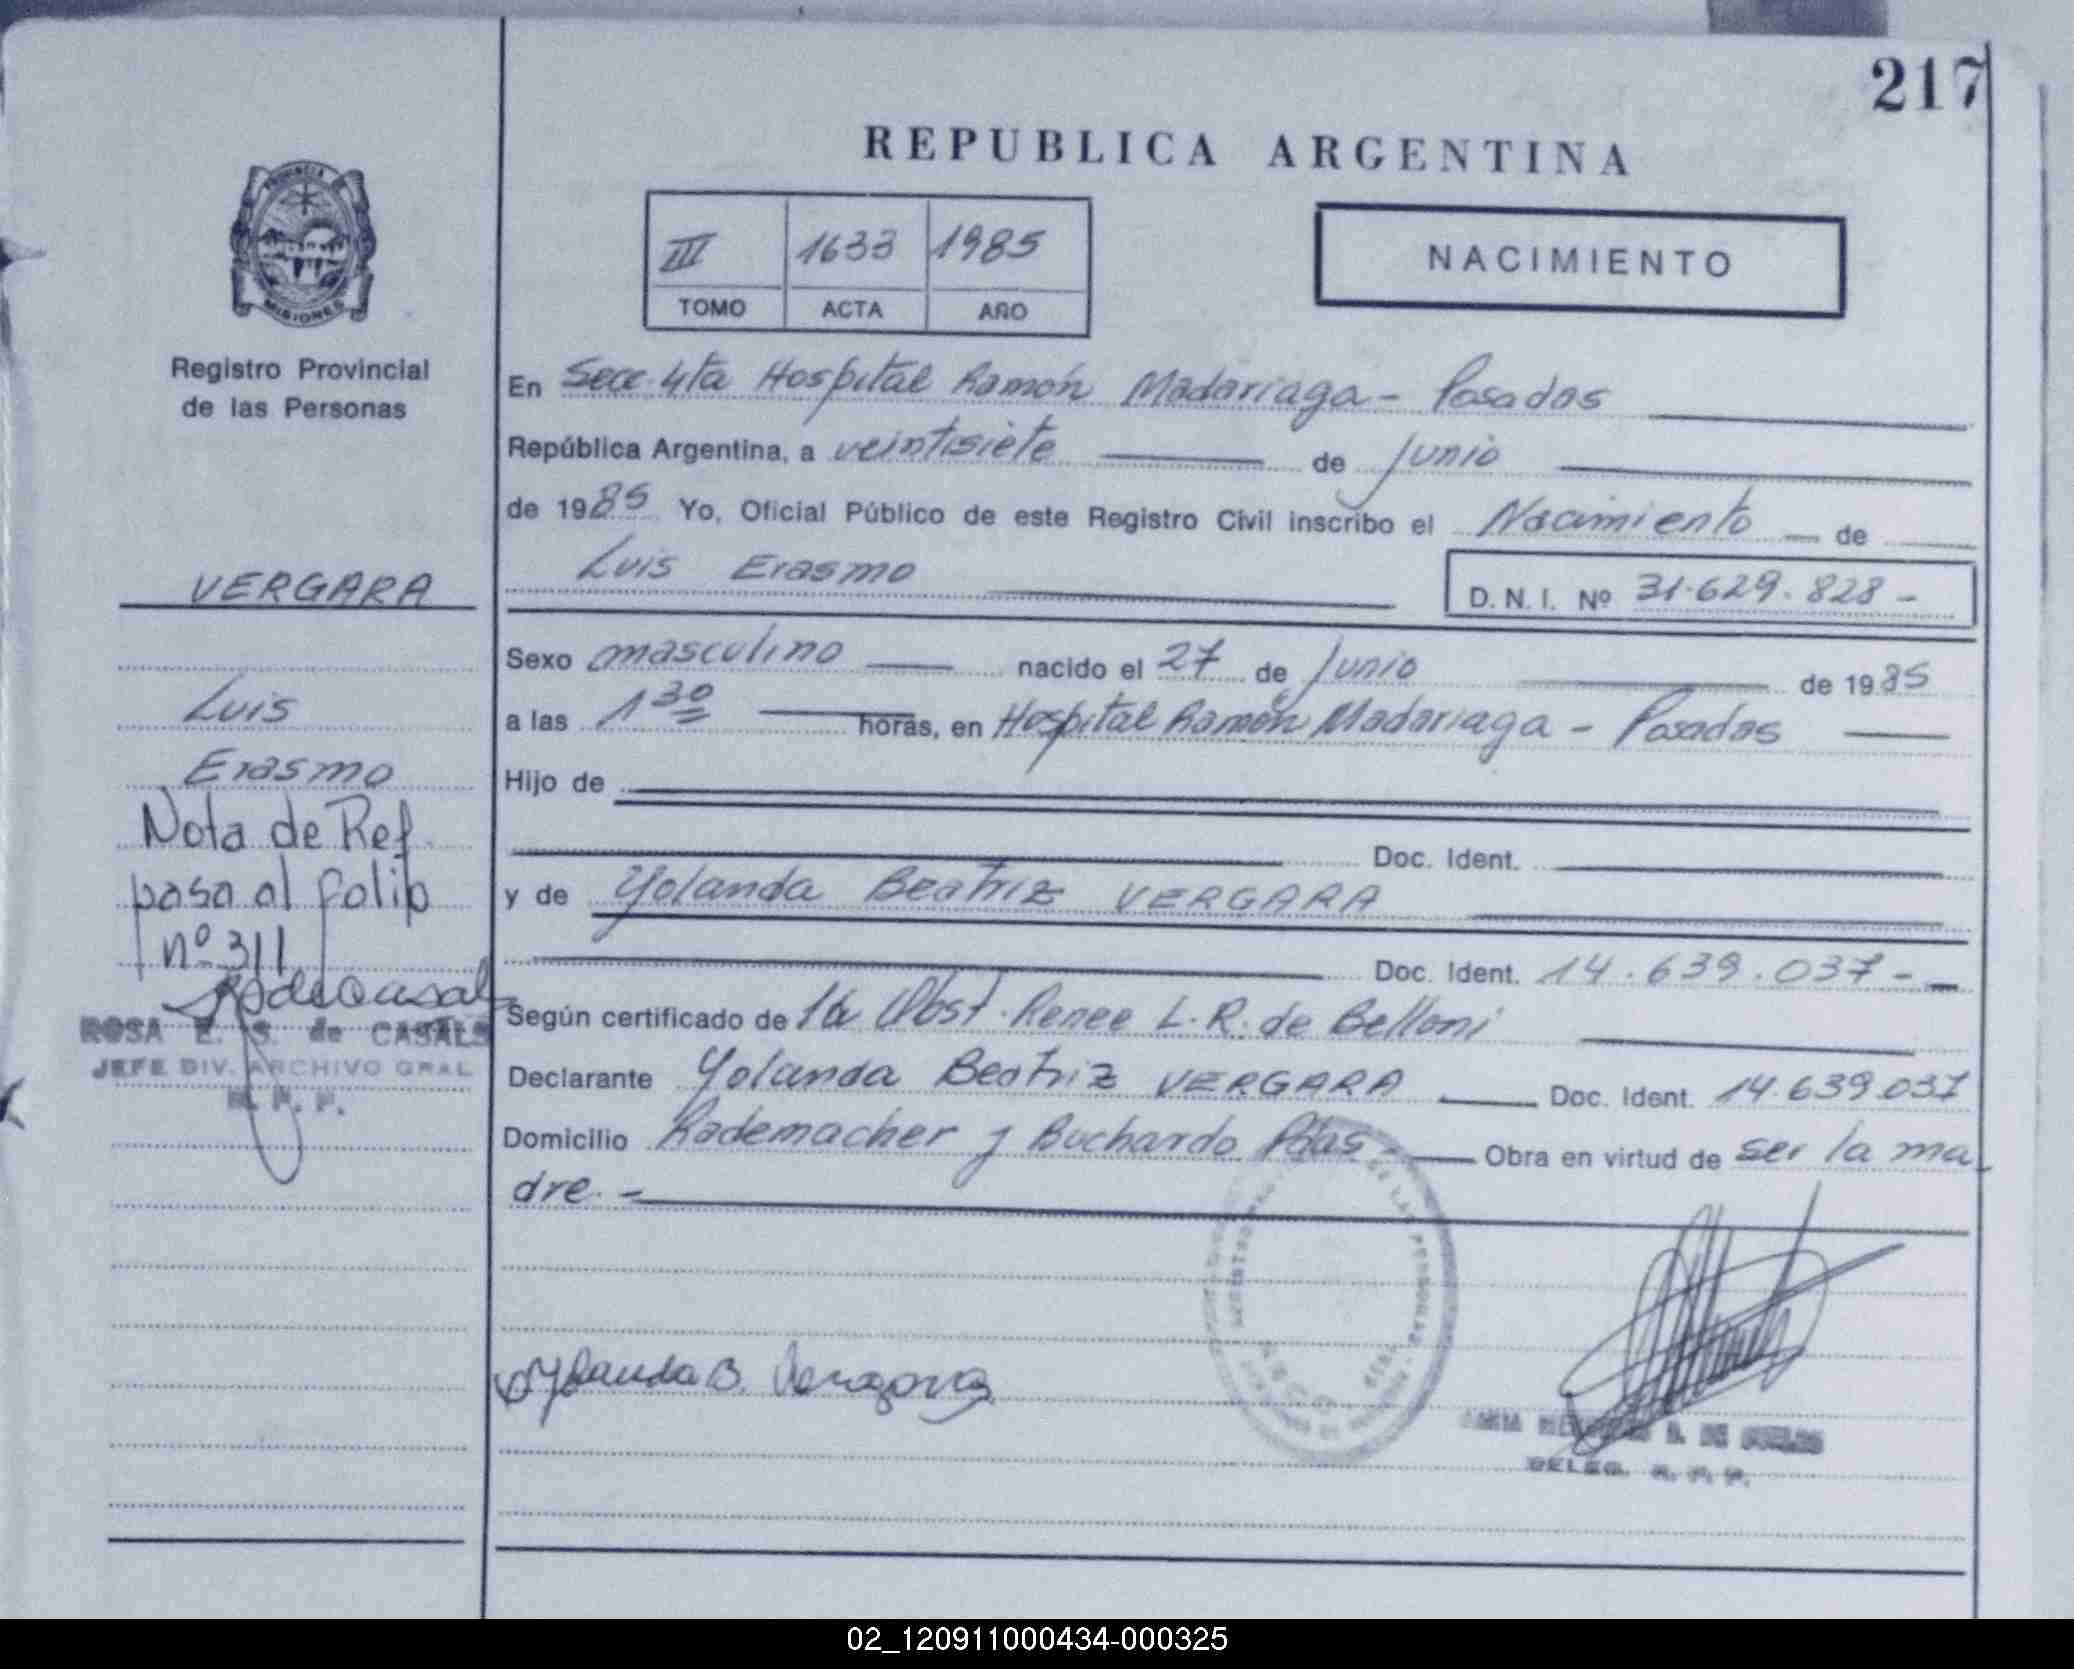 217
REPUBLICA ARGENTINA
PROVINCIA
MISIONES
Registro Provincial
de las Personas
III 1633 1985
TOMO ACTA AÑO
NACIMIENTO
En Secc. 4ta Hospital Ramón Madariaga - Posadas
República Argentina, a veintisiete de Junio
de 1985 Yo, Oficial Público de este Registro Civil inscribo el Nacimiento de
Luis Erasmo D. N. I. Nº 31.629.828 -
Sexo masculino nacido el 27 de Junio de 1985
a las 1 30 horas, en Hospital Ramón Madariaga - Posadas
Hijo de
Doc. Ident.
y de Yolanda Beatriz VERGARA
Doc. Ident. 14.639.037 -
Según certificado de la Obst. Renee L. R. de Belloni
Declarante Yolanda Beatriz VERGARA Doc. Ident. 14.639.037
Domicilio Rademacher y Buchardo Pdas - Obra en virtud de ser la ma
dre. -
VERGARA
Luis
Erasmo
Nota de Ref.
pasa al folio
nº 311
ROSA E. S. de CASALS
JEFE DIV. ARCHIVO GRAL
R. P. P.
Yolanda B. Vergara
DE LAS PERSONAS
DELEG. R. P. P.
02_120911000434-000325